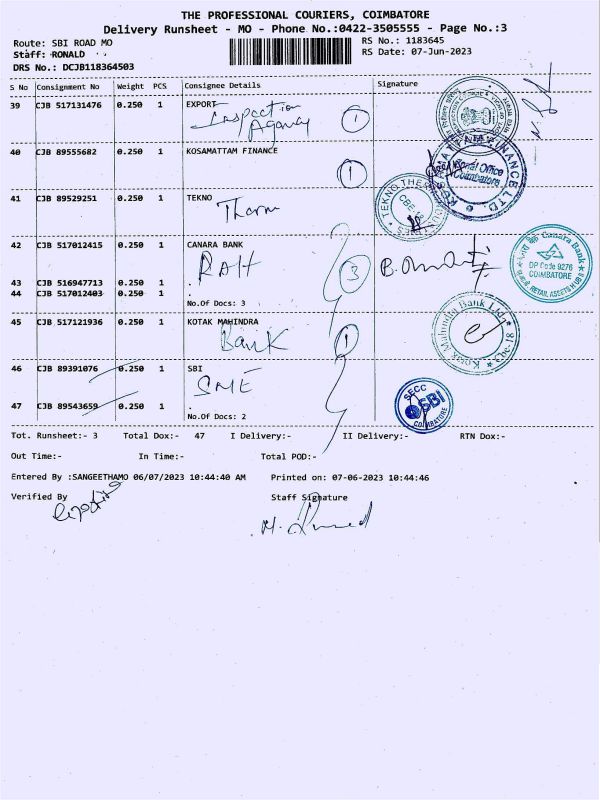 THE PROFESSIONAL COURIERS, COIMBATORE
Delivery Runsheet - MO - Phone No.:0422-3505555 - Page No.:3
Route: SBI ROAD MO RS No.: 1183645
Staff: RONALD RS Date: 07-Jun-2023
DRS No.: DCJB118364503
S No Consignment No Weight PCS Consignee Details Signature
39 CJB 517131476 0.250 1 EXPORT
Inspection
Agency 1
40 CJB 89555682 0.250 1 KOSAMATTAM FINANCE
1
41 CJB 89529251 0.250 1 TEKNO
Therm
42 CJB 517012415 0.250 1 CANARA BANK
RAH 3
43 CJB 516947713 0.250 1 .
44 CJB 517012403 0.250 1 .
No.Of Docs: 3
Canara Bank
DP Code 9276
COIMBATORE
RETAIL ASSETS HUB
45 CJB 517121936 0.250 1 KOTAK MAHINDRA
Bank 1
Kotak Mahindra Bank Ltd
46 CJB 89391076 0.250 1 SBI
SME
47 CJB 89543659 0.250 1 .
No.Of Docs: 2
SECC
SBI
COIMBATORE
Tot. Runsheet:- 3 Total Dox:- 47 I Delivery:- II Delivery:- RTN Dox:-
Out Time:- In Time:- Total POD:-
Entered By :SANGEETHAMO 06/07/2023 10:44:40 AM Printed on: 07-06-2023 10:44:46
Verified By Staff Signature